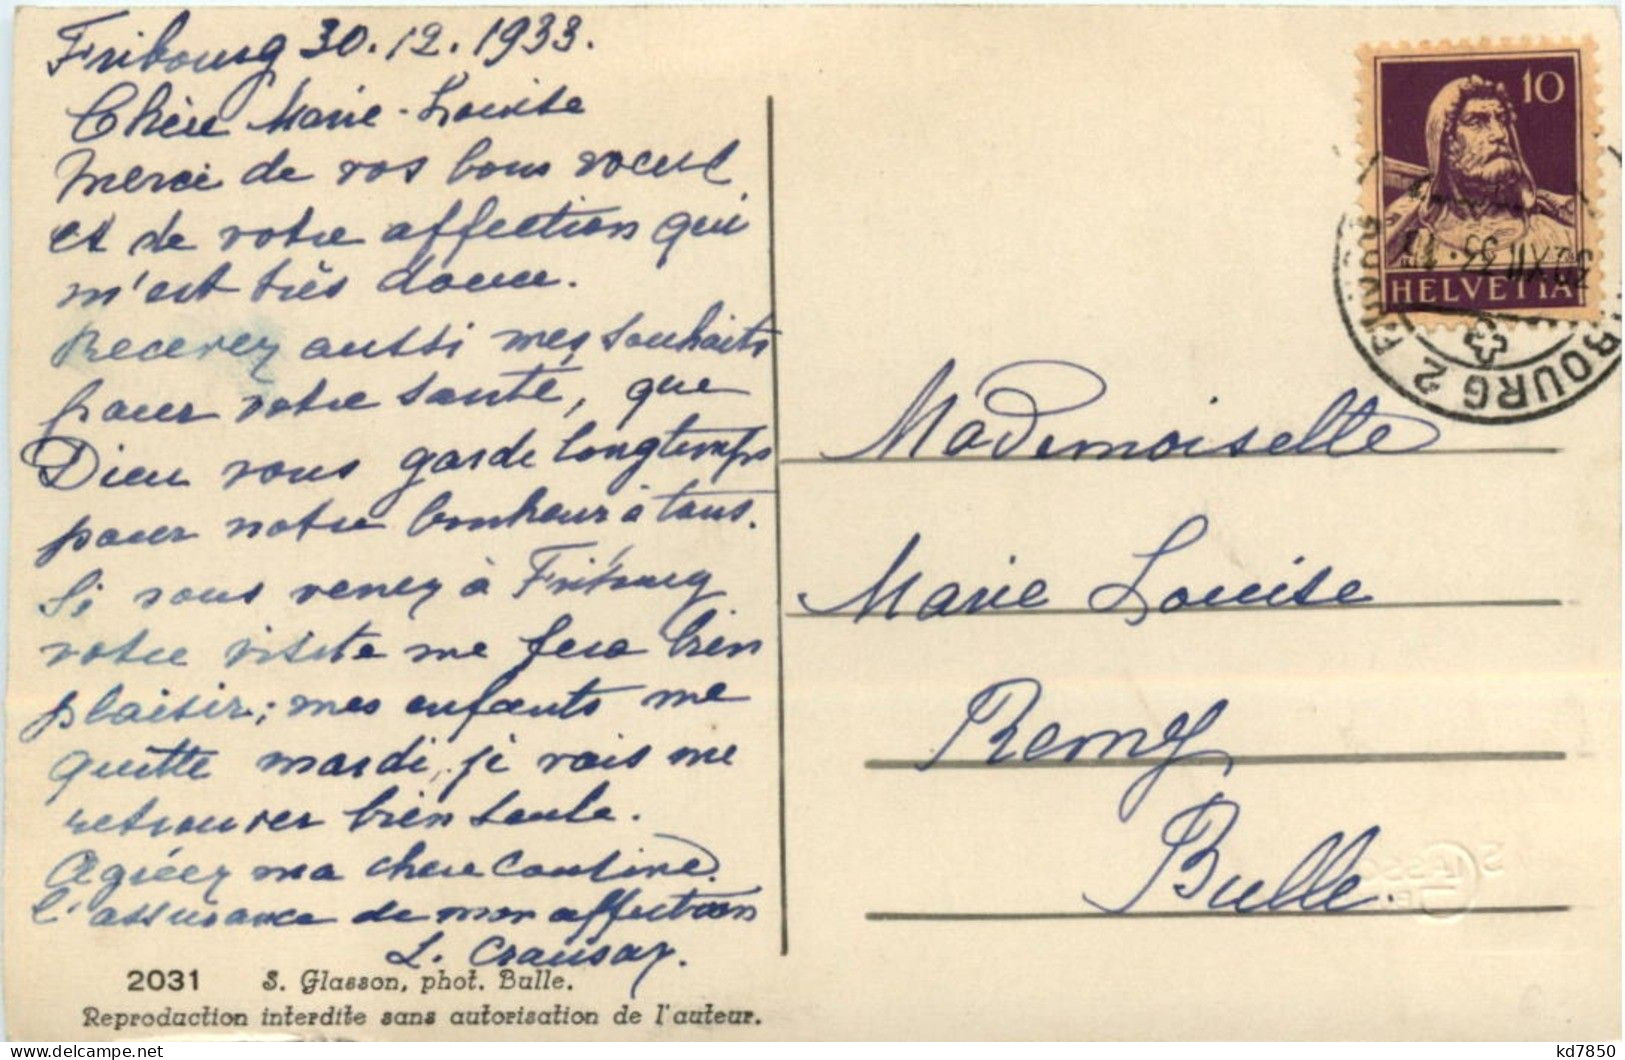 Fribourg 30.12.1933.
Chère Marie-Louise
Merci de vos bons voeux
et de votre affection qui
m'est très doux.
Recevez aussi mes souhaits
pour votre santé, que
Dieu vous garde longtemps
pour notre bonheur à tous.
Si vous venez à Fribourg
votre visite me fera bien
plaisir; mes enfants me
quitte mardi, je vais me
retrouver bien seule.
Agréez ma chère cousine
l'assurance de mon affection
L. Crausaz.
2031 S. Glasson, phot. Bulle.
Reproduction interdite sans autorisation de l'auteur.
10
HELVETIA
FRIBOURG 2
30.XII.33
Mademoiselle
Marie Louise
Remy
Bulle.
kd7850